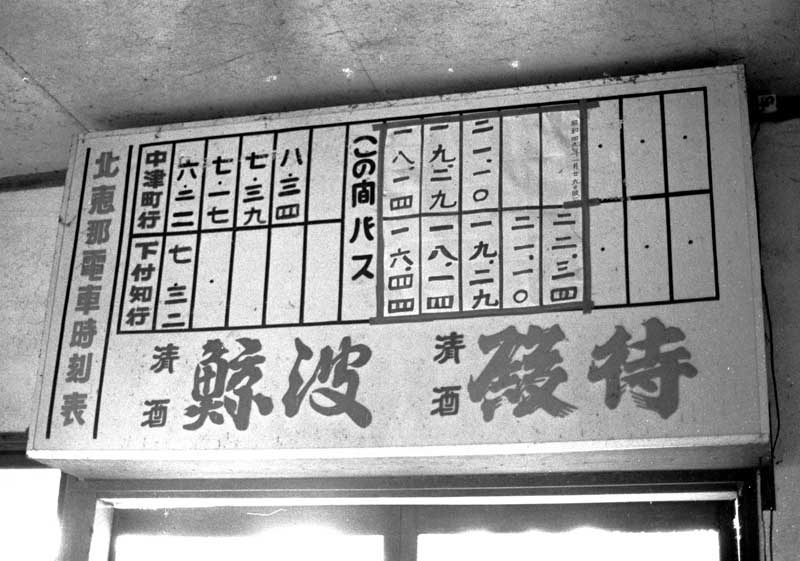 北恵那電車時刻表
中津町行 六・二二 七・一七 七・三九 八・三四
この間バス
一八・一四 一九・二九 二一・一〇
下付知行 七・三二
一六・四四 一八・一四 一九・二九 二一・一〇 二二・三四
清酒 鯨波
清酒